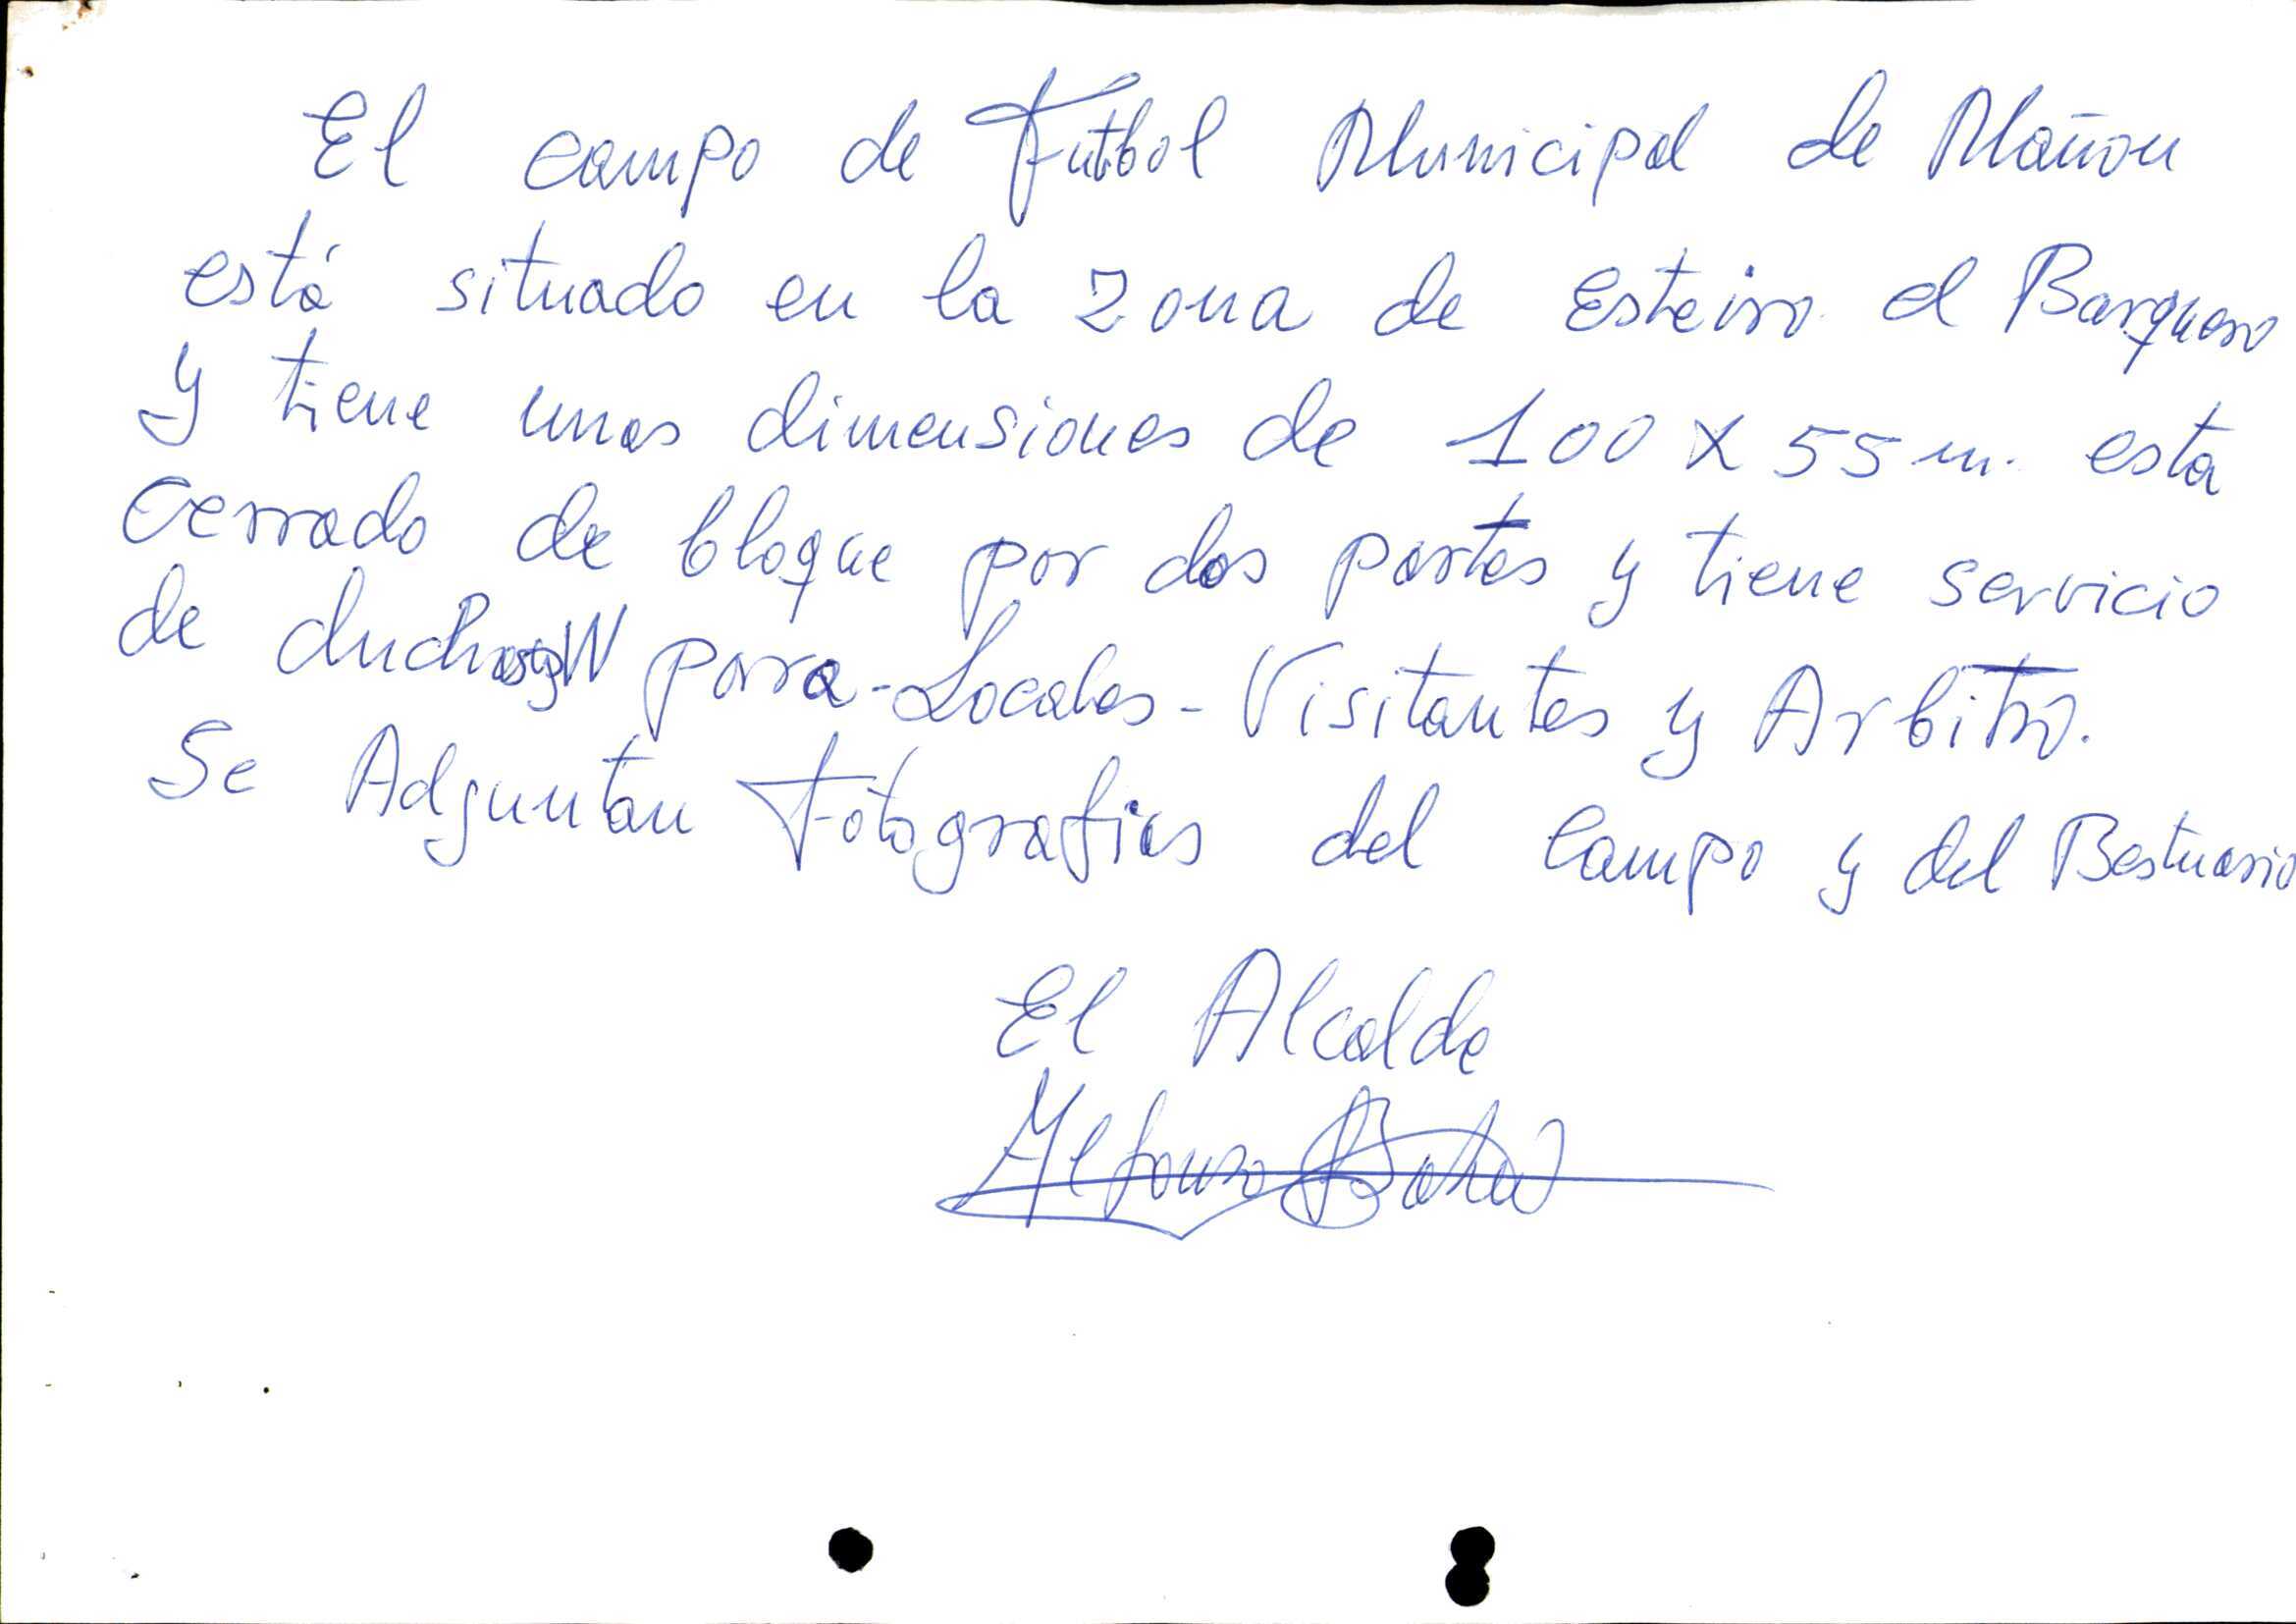 El campo de Futbol Municipal de Mañon
está situado en la zona de Esteiro el Barquero
y tiene unas dimensiones de 100 x 55 m. esta
Cerrado de bloque por dos partes y tiene servicio
de duchas y W para - Locales - Visitantes y Arbitro.
Se Adjuntan Fotografias del Campo y del Bestuario
El Alcalde
Alfonso